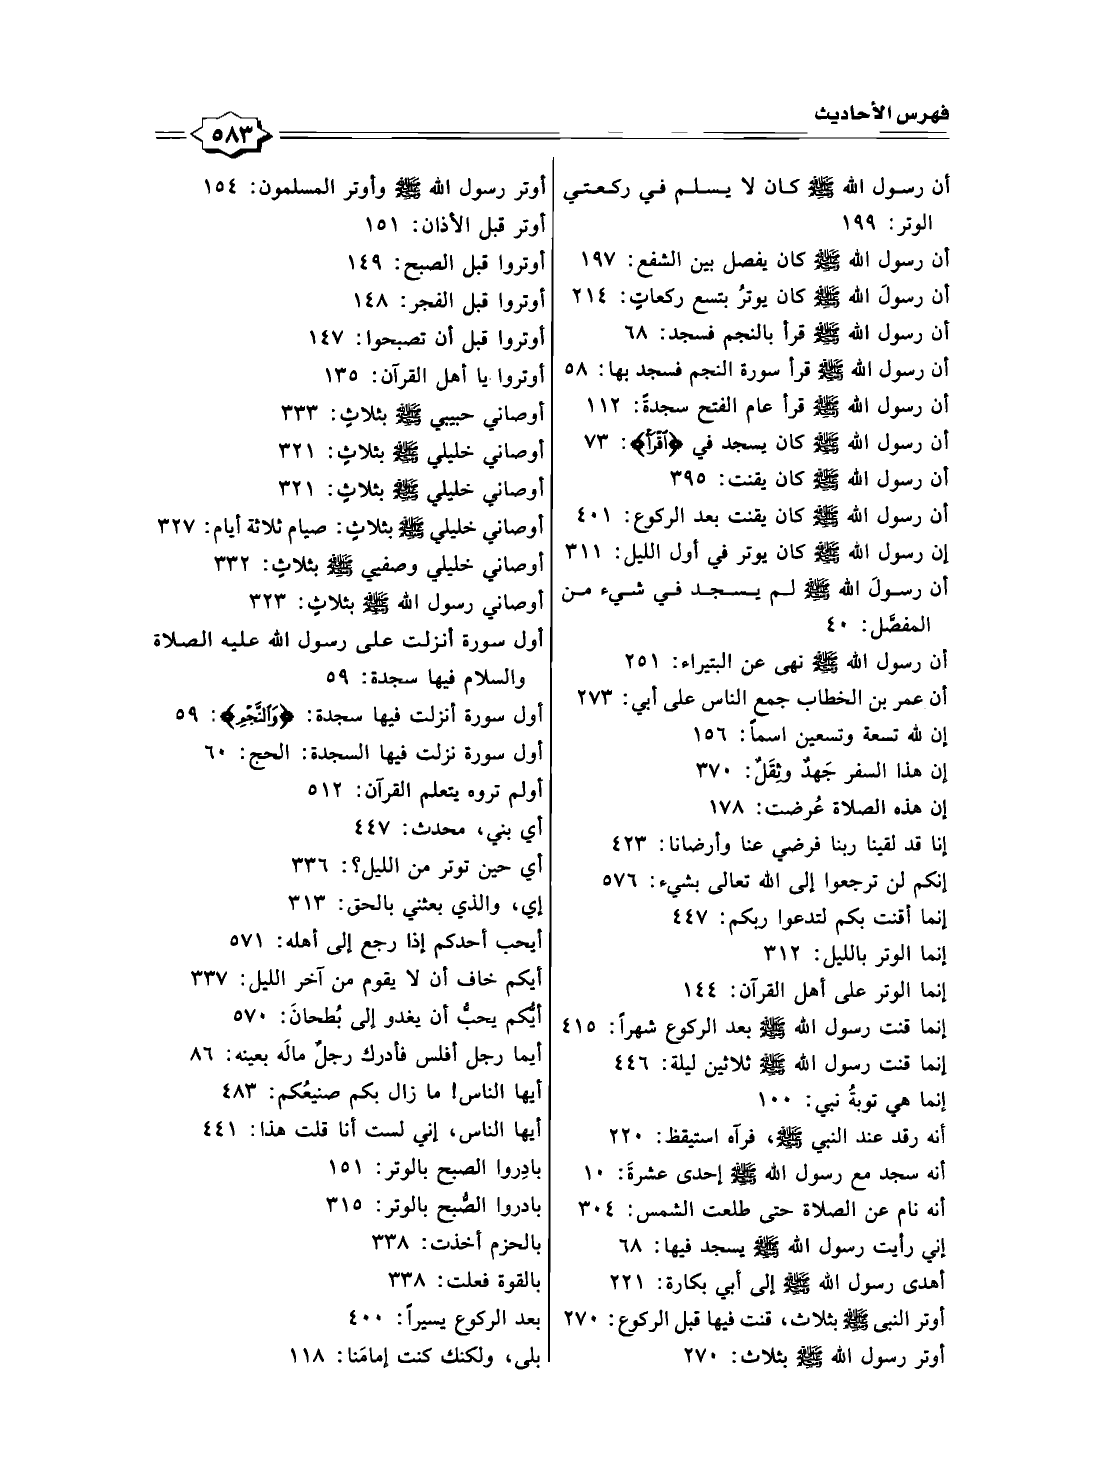 فهرس الأحاديث
٥٨٣
أن رسول الله ﷺ كان لا يسلم في ركعتي
الوتر: ١٩٩
أن رسول الله ﷺ كان يفصل بين الشفع: ١٩٧
أن رسولَ الله ﷺ كان يوترُ بتسع ركعاتٍ: ٢١٤
أن رسول الله ﷺ قرأ بالنجم فسجد: ٦٨
أن رسول الله ﷺ قرأ سورة النجم فسجد بها: ٥٨
أن رسول الله ﷺ قرأ عام الفتح سجدةً: ١١٢
أن رسول الله ﷺ كان يسجد في ﴿ٱقْرَأْ﴾: ٧٣
أن رسول الله ﷺ كان يقنت: ٣٩٥
أن رسول الله ﷺ كان يقنت بعد الركوع: ٤٠١
إن رسول الله ﷺ كان يوتر في أول الليل: ٣١١
أن رسولَ الله ﷺ لم يسجد في شيء من
المفصَّل: ٤٠
أن رسول الله ﷺ نهى عن البتيراء: ٢٥١
أن عمر بن الخطاب جمع الناس على أبي: ٢٧٣
إن لله تسعة وتسعين اسماً: ١٥٦
إن هذا السفر جَهدٌ وثِقَلٌ: ٣٧٠
إن هذه الصلاة عُرضت: ١٧٨
إنا قد لقينا ربنا فرضي عنا وأرضانا: ٤٢٣
إنكم لن ترجعوا إلى الله تعالى بشيء: ٥٧٦
إنما أقنت بكم لتدعوا ربكم: ٤٤٧
إنما الوتر بالليل: ٣١٢
إنما الوتر على أهل القرآن: ١٤٤
إنما قنت رسول الله ﷺ بعد الركوع شهراً: ٤١٥
إنما قنت رسول الله ﷺ ثلاثين ليلة: ٤٤٦
إنما هي توبةُ نبي: ١٠٠
أنه رقد عند النبي ﷺ، فرآه استيقظ: ٢٢٠
أنه سجد مع رسول الله ﷺ إحدى عشرةَ: ١٠
أنه نام عن الصلاة حتى طلعت الشمس: ٣٠٤
إني رأيت رسول الله ﷺ يسجد فيها: ٦٨
أهدى رسول الله ﷺ إلى أبي بكارة: ٢٢١
أوتر النبى ﷺ بثلاث، قنت فيها قبل الركوع: ٢٧٠
أوتر رسول الله ﷺ بثلاث: ٢٧٠
أوتر رسول الله ﷺ وأوتر المسلمون: ١٥٤
أوتر قبل الأذان: ١٥١
أوتروا قبل الصبح: ١٤٩
أوتروا قبل الفجر: ١٤٨
أوتروا قبل أن تصبحوا: ١٤٧
أوتروا يا أهل القرآن: ١٣٥
أوصاني حبيبي ﷺ بثلاثٍ: ٣٣٣
أوصاني خليلي ﷺ بثلاثٍ: ٣٢١
أوصاني خليلي ﷺ بثلاثٍ: ٣٢١
أوصاني خليلي ﷺ بثلاثٍ: صيام ثلاثة أيام: ٣٢٧
أوصاني خليلي وصفيي ﷺ بثلاثٍ: ٣٣٢
أوصاني رسول الله ﷺ بثلاثٍ: ٣٢٣
أول سورة أنزلت على رسول الله عليه الصلاة
والسلام فيها سجدة: ٥٩
أول سورة أنزلت فيها سجدة: ﴿وَٱلنَّجْمِ﴾: ٥٩
أول سورة نزلت فيها السجدة: الحج: ٦٠
أولم تروه يتعلم القرآن: ٥١٢
أي بني، محدث: ٤٤٧
أي حين توتر من الليل؟: ٣٣٦
إي، والذي بعثني بالحق: ٣١٣
أيحب أحدكم إذا رجع إلى أهله: ٥٧١
أيكم خاف أن لا يقوم من آخر الليل: ٣٣٧
أيُّكم يحبُّ أن يغدو إلى بُطحانَ: ٥٧٠
أيما رجل أفلس فأدرك رجلٌ مالَه بعينه: ٨٦
أيها الناس! ما زال بكم صنيعُكم: ٤٨٣
أيها الناس، إني لست أنا قلت هذا: ٤٤١
بادِروا الصبح بالوتر: ١٥١
بادروا الصُّبح بالوتر: ٣١٥
بالحزم أخذت: ٣٣٨
بالقوة فعلت: ٣٣٨
بعد الركوع يسيراً: ٤٠٠
بلى، ولكنك كنت إمامَنا: ١١٨